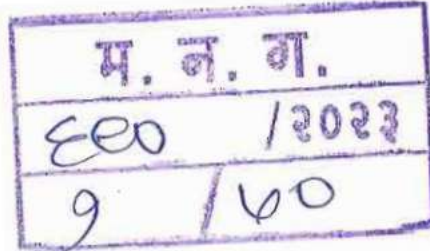 म. न. ग.
६९० /२०२३
१ /५०